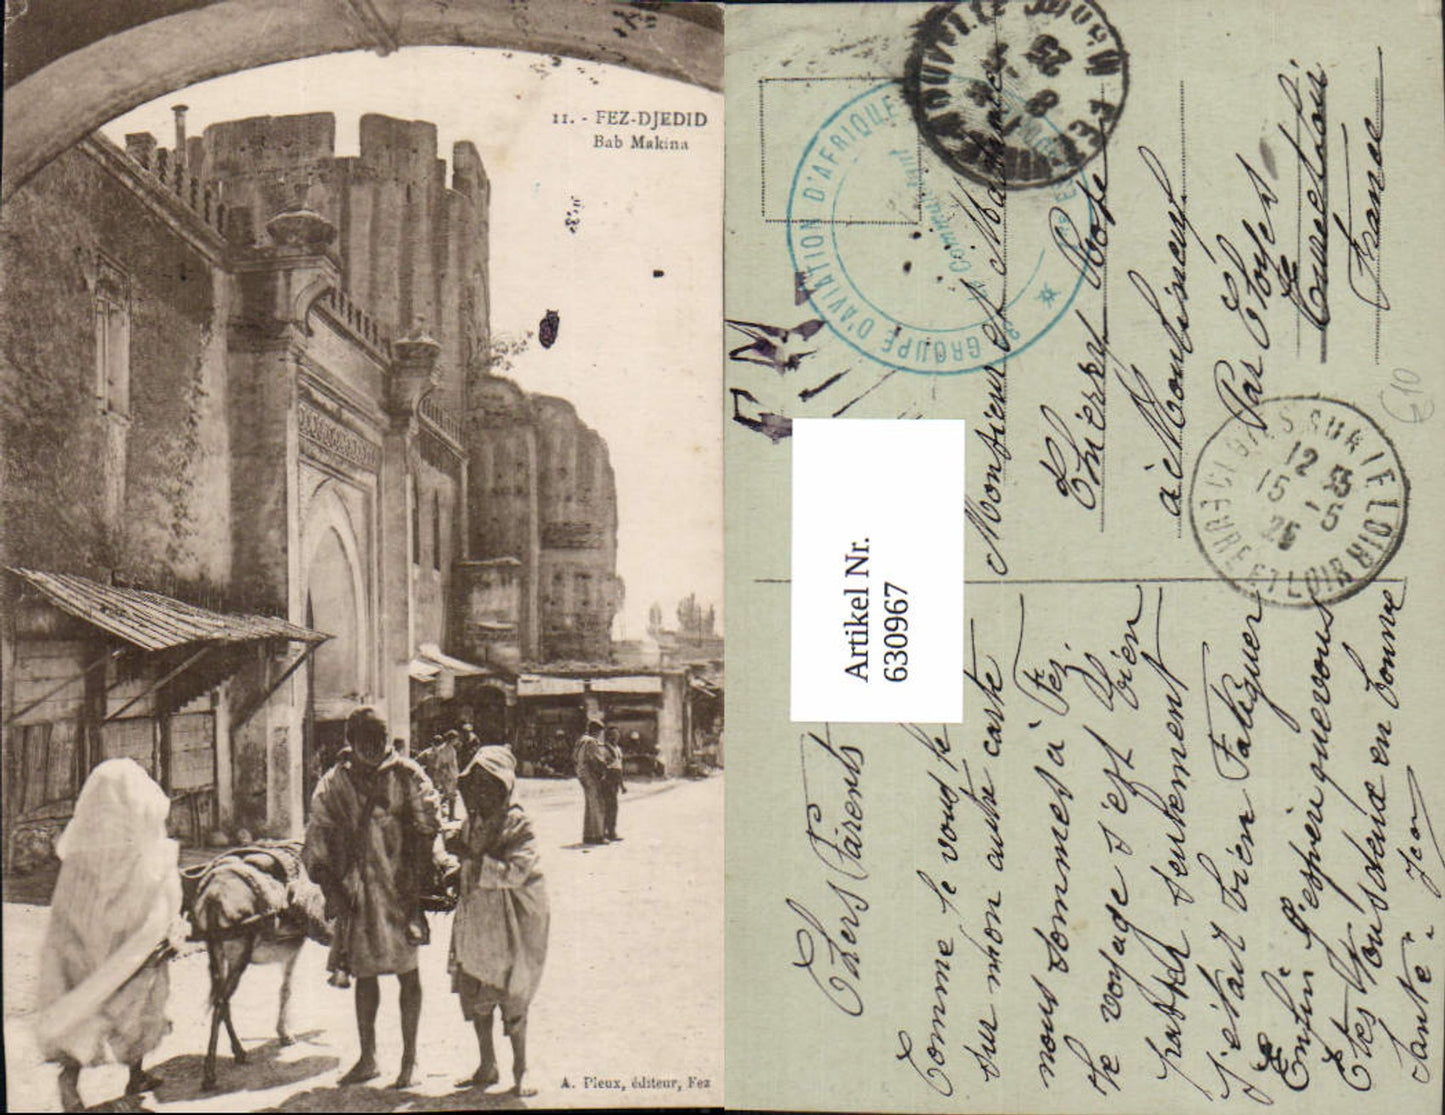 11. - FEZ-DJEDID
Bab Makina
A. Pieux, éditeur, Fez
F M
GROUPE D'AVIATION D'AFRIQUE
Le Commandant
FEZ
8
25
Artikel Nr.
630967
Monsieur et Madame
Thierry
à Montisseuf
Par Cloyes
Eure et Loir
France
CLOYES SUR LE LOIR
12 35
15 - 5
25
EURE ET LOIR
€10
Chers Parents
Comme je vous le
sur mon autre carte
nous sommes à Fez.
le voyage s'est bien
passer seulement
j'étais bien Fatiguer
Enfin j'espère que vous
Etes tous deux en bonne
santé. Jean